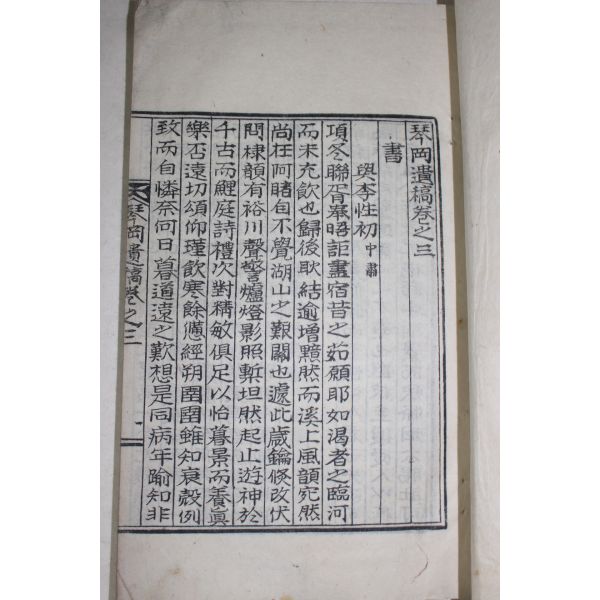 琴岡遺稿卷之三
書
與李性初 中肅
項冬聯胥奉晤詎盡宿昔之茹願耶如渴者之臨河
而未充飮也歸後耿結逾增黯然而溪上風韻宛然
尚在阿睹自不覺湖山之艱關也遽此歲鑰倏改伏
問棣韻有裕川聲警爐燈影照槧坦然起止遊神於
千古而鯉庭詩禮次對精敏俱足以怡暮景而養眞
樂否遠切頌仰瑾飮寒餘憊經朔圉圉雖知衰殼例
致而自憐奈何日暮道遠之歎想是同病年喻知非
琴岡遺稿卷之三